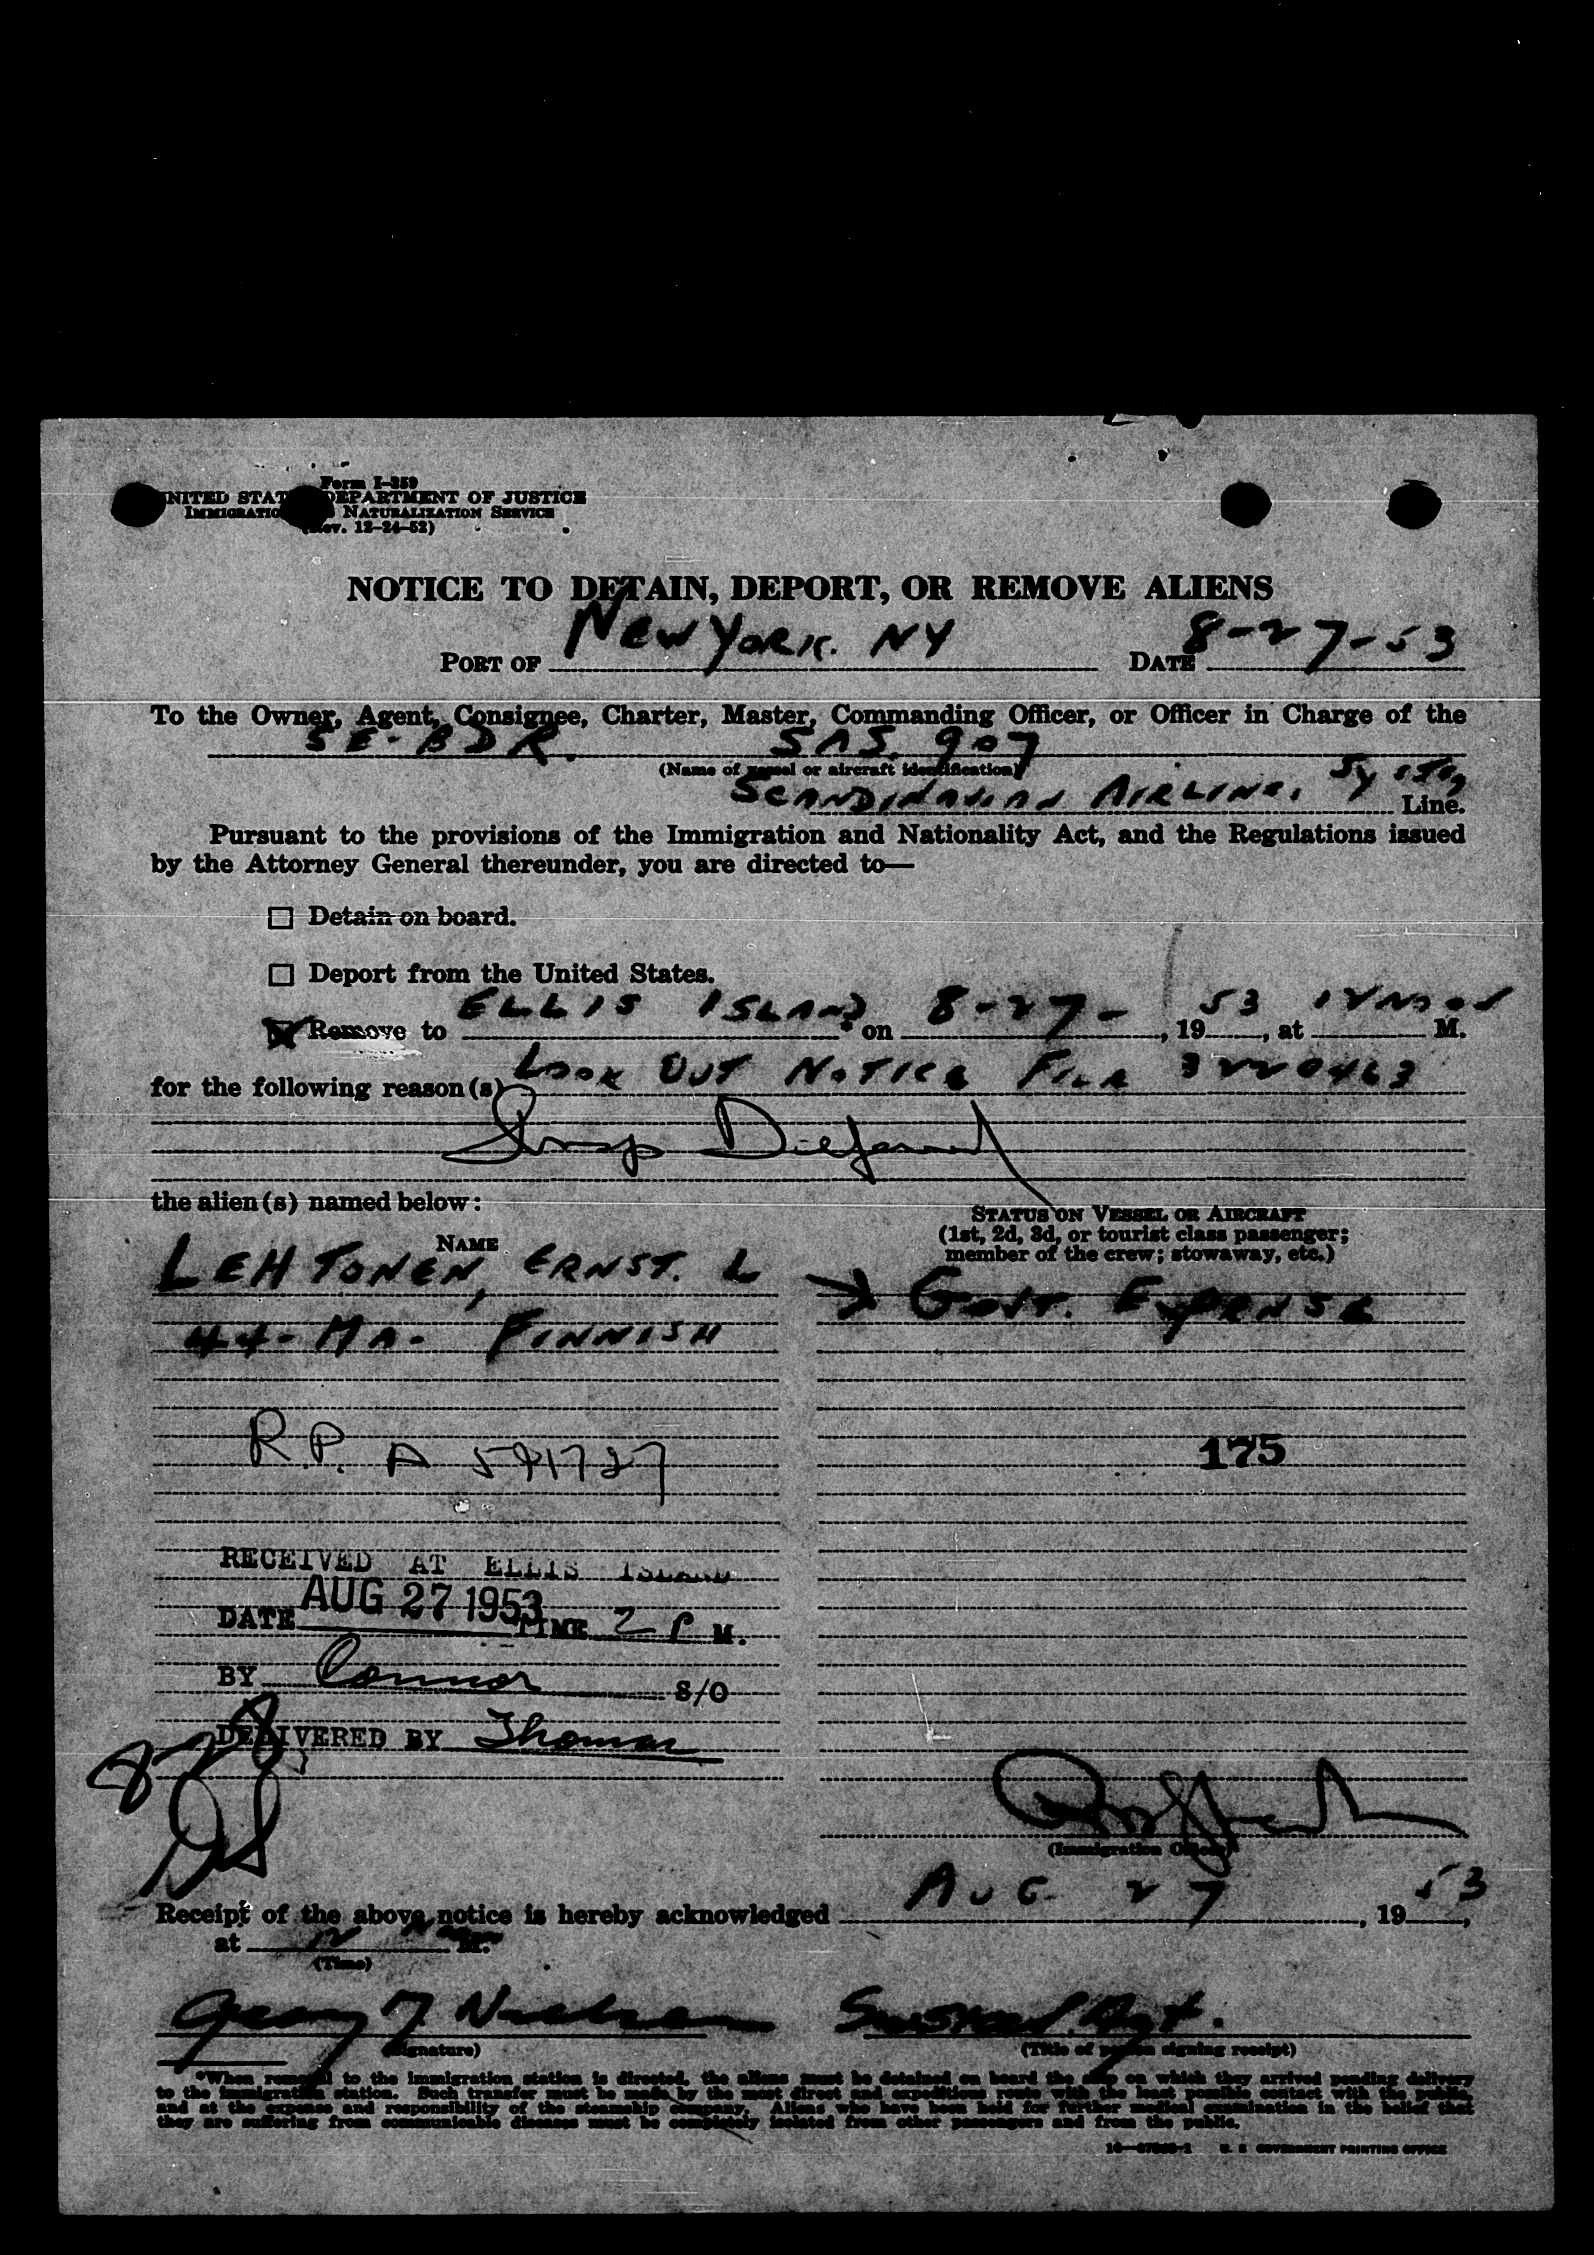 Form I-259
UNITED STATES DEPARTMENT OF JUSTICE
IMMIGRATION NATURALIZATION SERVICE
(Rev. 12-24-52)
NOTICE TO DETAIN, DEPORT, OR REMOVE ALIENS
PORT OF New York. NY DATE 8-27-53
To the Owner, Agent, Consignee, Charter, Master, Commanding Officer, or Officer in Charge of the
SE-BDR. SAS. 907
(Name of vessel or aircraft identification)
SCANDINAVIAN AIRLINES Line.
Pursuant to the provisions of the Immigration and Nationality Act, and the Regulations issued
by the Attorney General thereunder, you are directed to—
Detain on board.
Deport from the United States.
Remove to ELLIS ISLAND * on 8-27-, 1953, at 12 NOON M.
for the following reason(s) LOOK OUT NOTICE FILE 3220463
the alien(s) named below:
STATUS ON VESSEL OR AIRCRAFT
(1st, 2d, 3d, or tourist class passenger;
member of the crew; stowaway, etc.)
NAME
LEHTONEN, ERNST. L → GOVT. EXPENSE
44-MA- FINNISH
R.P. A 591727
175
RECEIVED AT ELLIS ISLAND
DATE AUG 27 1953 TIME 2 P M.
BY Connor S/O
DELIVERED BY Thomas
(Immigration Officer)
Receipt of the above notice is hereby acknowledged AUG. 27, 1953,
at 12 Noon M.
(Time)
(Signature) (Title of person signing receipt)
*When removal to the immigration station is directed, the aliens must be detained on board the ship on which they arrived pending delivery
to the immigration station. Such transfer must be made by the most direct and expeditious route with the least possible contact with the public,
and at the expense and responsibility of the steamship company. Aliens who have been held for further medical examination in the belief that
they are suffering from communicable diseases must be completely isolated from other passengers and from the public.
U. S. GOVERNMENT PRINTING OFFICE